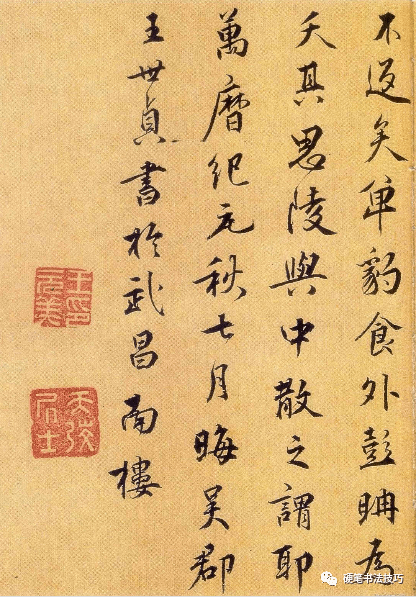 不返矣單豹食外彭聃為
夭其思陵與中散之謂耶
萬曆紀元秋七月晦吳郡
王世貞書於武昌南樓
王印元美
天弢居士
硬笔书法技巧